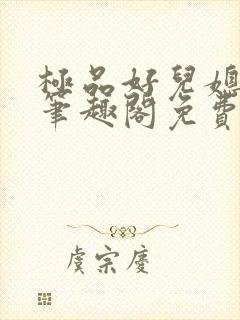 極品好兒媳
筆趣閣免費
虞宗慶